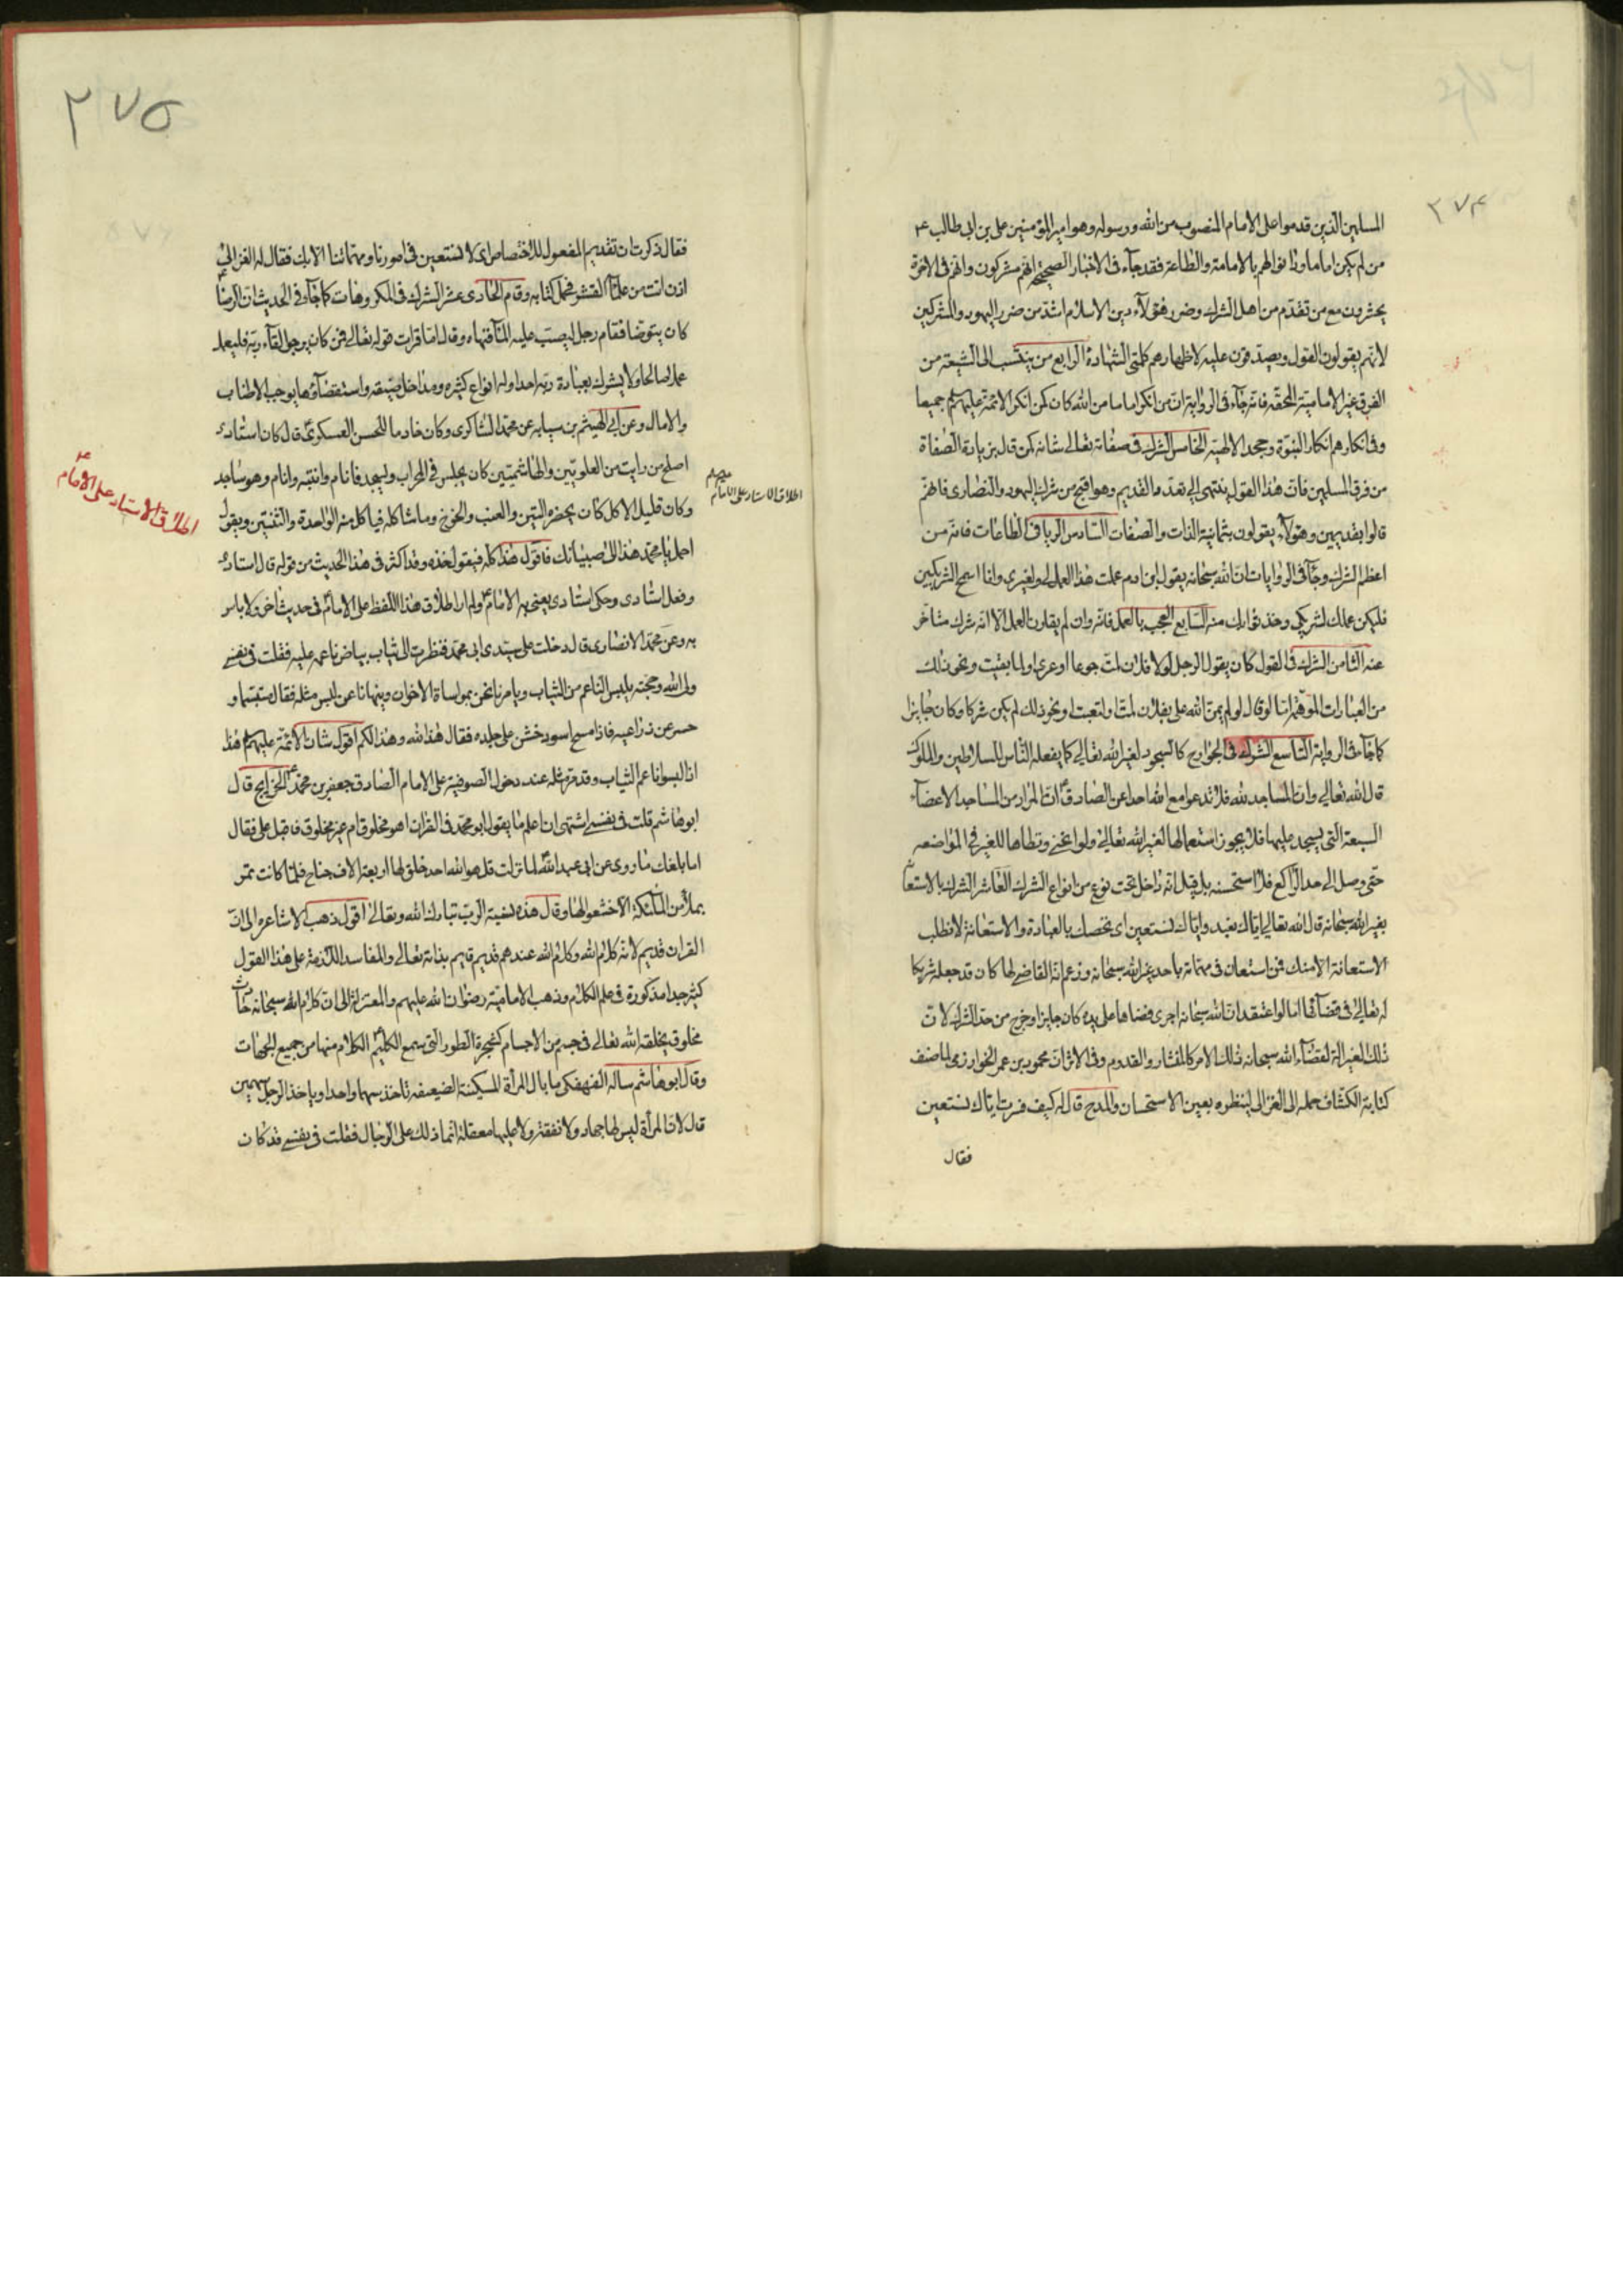 ٢٧٤
المسلمين الذين قدموا على الامام المنصوب من الله ورسوله وهو امير المؤمنين على بن ابى طالب ع
من لم يكن اماما ودانوا لهم بالامامة والطاعة فقد جآء فى الاخبار الصحيحة انهم مشركون وانهم فى الاخرة
يحشرون مع من تقدم من اهل الشرك وضرر هؤلآء على دين الاسلام اشد من ضرر اليهود والمشركين
لانهم يقولون القول ويصدقون عليه لاظهارهم كلمتى الشهادة الرابع من ينتسب الى الشيعة من
الفرق غير الامامية المحقة فانه جآء فى الرواية ان من انكر اماما من الله كان كمن انكر الائمة عليهم السلم جميعا
وفى انكارهم انكار النبوة وجحد الالهية الخامس الشرك فى صفاته تعالى شانه كمن قال بزيادة الصفاة
من فرق المسلمين فان هذا القول ينتهى الى تعدد القديم وهو اقبح من شرك اليهود والنصارى فانهم
قالوا بقديمين وهؤلآء يقولون بثمانية الذات والصفات السادس الريا فى الطاعات فانه من
اعظم الشرك وجآء فى الروايات ان الله سبحانه يقول ابن ادم عملت هذا العمل لى ولغيرى وانا اسمح الشريكين
فليكن عملك لشريكى وخذ ثوابك منه السابع العجب بالعمل فانه وان لم يقارن العمل الا انه شرك متاخر
عنه الثامن الشرك فى القول كان يقول الرجل لولا فلان لمت جوعا او عريا ولما بقيت ونحو ذلك
من العبارات الموهمة اما لو قال لو لم يمن الله على بفلان لمت او لتعبت او نحو ذلك لم يكن شركا وكان جايزا
كما جآء فى الرواية التاسع الشرك فى الجوارح كالسجود لغير الله تعالى كما يفعله الناس للسلاطين والملوك
قال الله تعالى وان المساجد لله فلا تدعوا مع الله احدا عن الصادق ع ان المراد من المساجد الاعضآء
السبعة التى يسجد عليها فلا يجوز استعمالها لغير الله تعالى ولو انحنى وتطاها للغير فى المواضعه
حتى وصل الى حد الراكع فلا استحسنه بل قيل انه داخل تحت نوع من انواع الشرك العاشر الشرك بالاستعانة
بغير الله سبحانه قال الله تعالى اياك نعبد واياك نستعين اى نخصك بالعبادة والاستعانة لا نطلب
الاستعانة الا منك فمن استعان فى مهماته باحد غير الله سبحانه وزعم انه القاضى لها كان قد جعله شريكا
له تعالى فى قضآئها اما لو اعتقد ان الله سبحانه اجرى قضاها على يده كان جايزا وخرج من حد الشرك لان
ذلك لغير الة لقضآء الله سبحانه ذلك الامر كالمنشار والقدوم وفى الاثر ان محمود بن عمر الخوارزمى لما صنف
كتابه الكشاف حمله الى الغزالى لينظره بعين الاستحسان والمدح قال له كيف فسرت اياك نستعين
فقال
٢٧٥
فقال ذكرت ان تقديم المفعول للاختصاص اى لا نستعين فى امورنا ومهماتنا الا بك فقال له الغزالى
اذن انت من علمآء القشور فحمل كتابه وقام الحادى عشر الشرك فى المكروهات كما جآء فى الحديث ان الرضا ع
كان يتوضا فقام رجل ليصب عليه المآء فنهاه وقال اما قرات قوله تعالى فمن كان يرجو لقآء ربه فليعمل
عملا صالحا ولا يشرك بعبادة ربه احدا وله انواع كثيره ومداخل ضيقه واستقصآؤها يوجب الاطناب
والامال وعن ابى الهيثم بن سيابه عن محمد الشاكرى وكان خادما للحسن العسكرى ع قال كان استادى
اصلح من رايت من العلويين والهاشميين كان يجلس فى المحراب ويسجد فانام وانتبه وانام وهو ساجد
وكان قليل الاكل كان يحضره التين والعنب والخوخ وما شاكله فياكل منه الواحدة والثنتين ويقول
احمل يا محمد هذا الى صبيانك فاقول هذا كله فيقول خذه وقد اكثر فى هذا الحديث من قوله قال استادى
وفعل استادى وحكى استادى يعنى به الامام ع ولم ار اطلاق هذا اللفظ على الامام ع فى حديث اخر ولا باس
به وعن محمد الانصارى قال دخلت على سيدى ابى محمد فنظرت الى ثياب بياض ناعمه عليه فقلت فى نفسى
ولى الله وحجته يلبس الناعم من الثياب ويامرنا نحن بمواساة الاخوان وينهانا عن لبس مثله فقال متبسما و
حسر عن ذراعيه فاذا مسح اسود خشن على جلده فقال هذا لله وهذا لكم اقول شان الائمة عليهم السلم هذا
اذا لبسوا ناعم الثياب وقد مر مثله عند دخول الصوفية على الامام الصادق جعفر بن محمد ع الخرايج قال
ابو هاشم قلت فى نفسى اشتهى ان اعلم ما يقول ابو محمد فى القران اهو مخلوق ام غير مخلوق فاقبل على فقال
اما بلغك ما روى عن ابى عبد الله ع لما نزلت قل هو الله احد خلق لها اربعة الاف جناح فلما كانت تمر
بملأ من الملآئكة الا خشعوا لها وقال هذه نسبة الرب تبارك الله وتعالى اقول ذهب الاشاعره الى ان
القران قديم لانه كلام الله وكلام الله عندهم قديم قايم بذاته تعالى والمفاسد اللازمة على هذا القول
كثير جدا مذكورة فى علم الكلام وذهب الامامية رضوان الله عليهم والمعتزلة الى ان كلام الله سبحانه حادث
مخلوق يخلقه الله تعالى فى جسم من الاجسام كشجرة الطور التى سمع الكليم ع الكلام منها من جميع الجهات
وقال ابو هاشم ساله الفهفكى ما بال المرأة المسكينة الضعيفه تاخذ سهما واحدا وياخذ الرجل سهمين
قال لان المرأة ليس لها جهاد ولا نفقة ولا عليها معقلة انما ذلك على الرجال فقلت فى نفسى قد كان
اطلاق الاستاد على الامام
اطلاق الاستاد على الامام ع